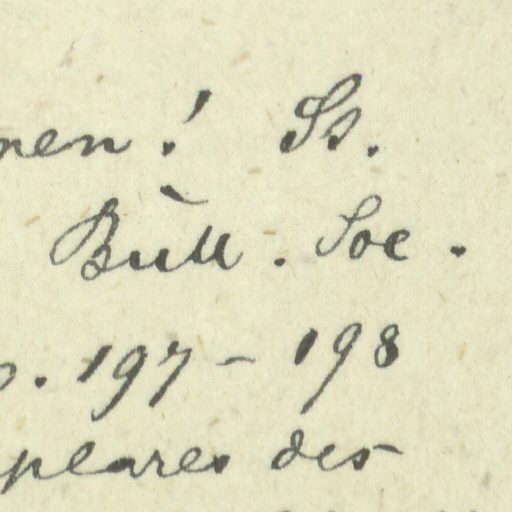 nen! Ss.
Bull. Soc.
p. 197-198
plares des